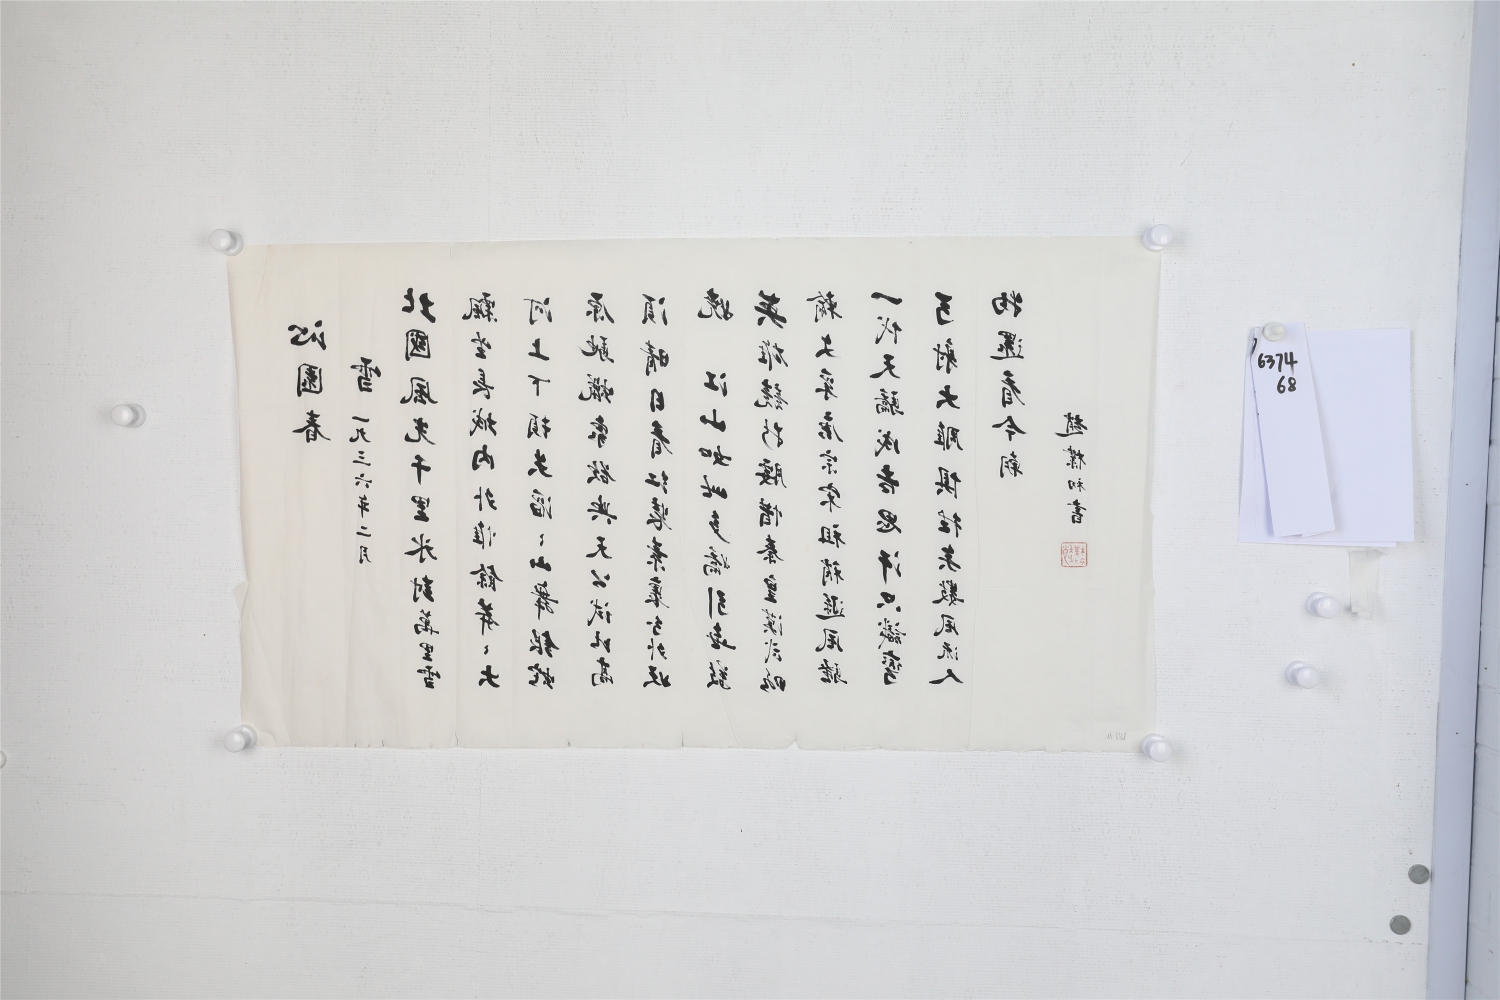 沁園春
雪 一九三六年二月
北國風光千里冰封萬里雪
飄望長城內外惟餘莽〻大
河上下頓失滔〻山舞銀蛇
原馳蠟象欲與天公試比高
須晴日看紅裝素裹分外妖
嬈 江山如此多嬌引無數
英雄競折腰惜秦皇漢武略
輸文采唐宗宋祖稍遜風騷
一代天驕成吉思汗只識彎
弓射大雕俱往矣數風流人
物還看今朝
趙樸初書
6374
68